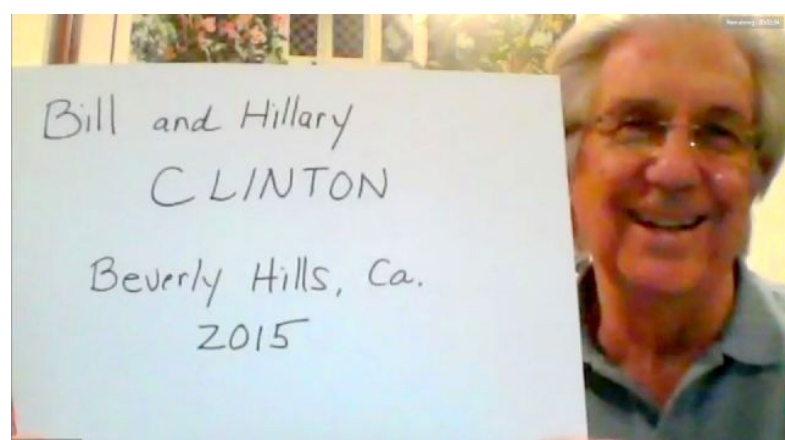 Bill and Hillary
CLINTON
Beverly Hills, Ca.
2015